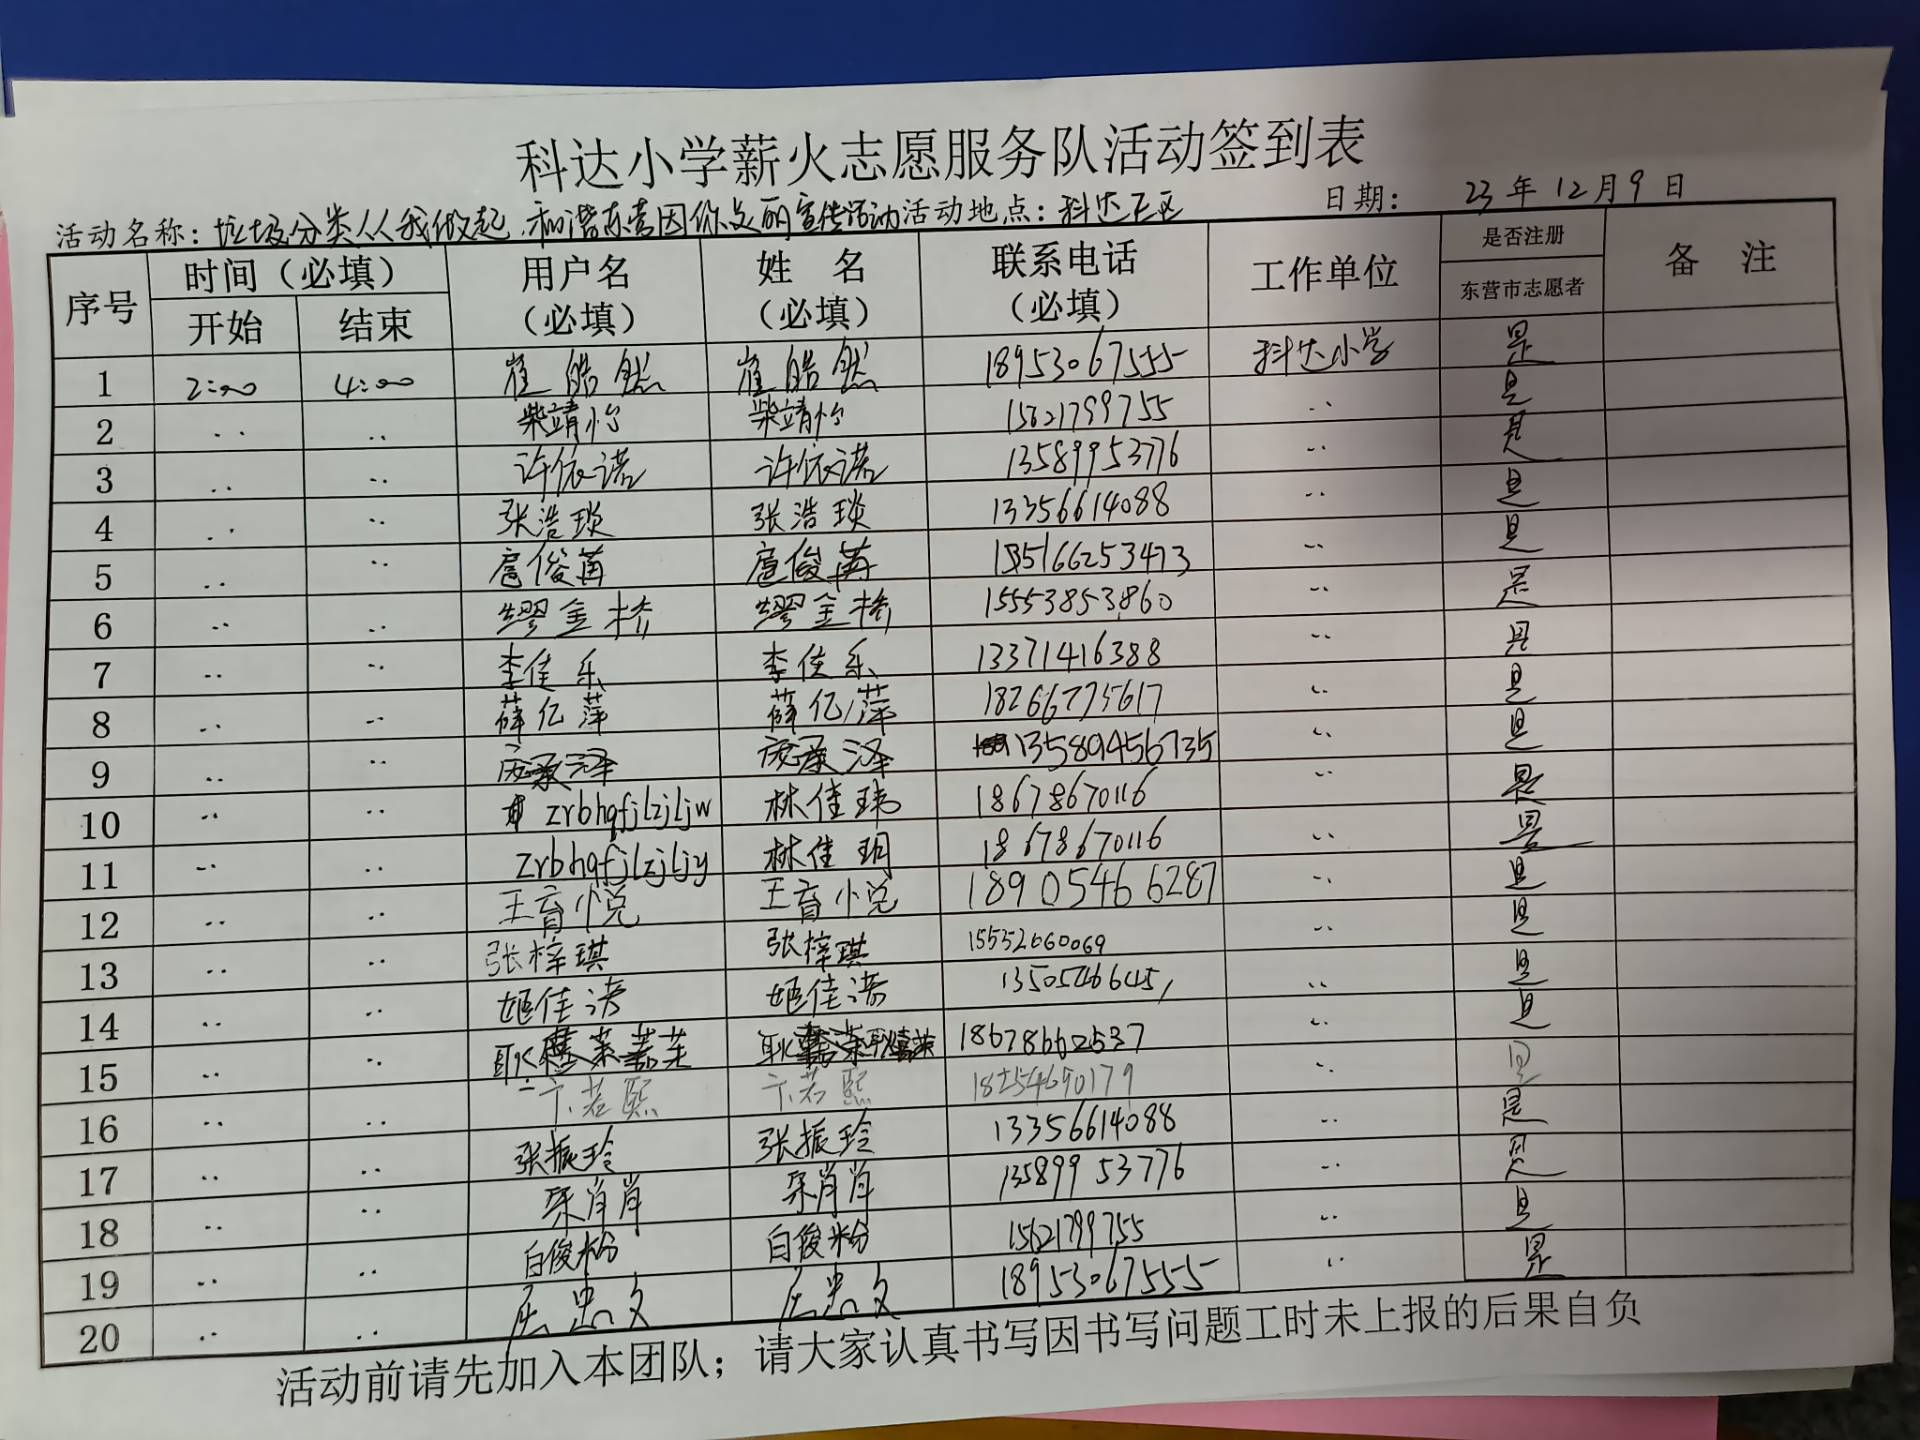 科达小学薪火志愿服务队活动签到表
活动名称：垃圾分类从我做起，和谐东营因你更美丽宣传活动 活动地点：科达工区 日期：23年12月9日
序号 时间（必填） 用户名（必填） 姓 名（必填） 联系电话（必填） 工作单位 是否注册 东营市志愿者 备 注
开始 结束
1 2:00 4:00 崔皓然 崔皓然 18953067555 科达小学 是
2 ·· ·· 柴靖怡 柴靖怡 15621799755 ·· 是
3 ·· ·· 许依诺 许依诺 13589953776 ·· 是
4 ·· ·· 张浩琰 张浩琰 13356614088 ·· 是
5 ·· ·· 扈俊苒 扈俊苒 ·· 是
6 ·· ·· 缪金桥 缪金桥 15553853860 ·· 是
7 ·· ·· 李佳乐 李佳乐 13371416388 ·· 是
8 ·· ·· 薛亿萍 薛亿萍 18266775617 ·· 是
9 ·· ·· 庞承泽 庞承泽 13589456735 ·· 是
10 ·· ·· zrbhqfjlzjljw 林佳玮 18678670116 ·· 是
11 ·· ·· zrbhqfjlzjljy 林佳玥 18678670116 ·· 是
12 ·· ·· 王育小悦 王育小悦 18905466287 ·· 是
13 ·· ·· 张梓琪 张梓琪 15552660069 ·· 是
14 ·· ·· 姬佳涛 姬佳涛 ·· 是
15 ·· ·· 耿 18678662537 ·· 是
16 ·· ·· 卞若熙 卞若熙 18254690179 ·· 是
17 ·· ·· 张振玲 张振玲 13356614088 ·· 是
18 ·· ·· 肖肖 肖肖 13589953776 ·· 是
19 ·· ·· 白俊粉 白俊粉 15621799755 ·· 是
20 ·· ·· 忠文 忠文 18953067555 ·· 是
活动前请先加入本团队；请大家认真书写因书写问题工时未上报的后果自负